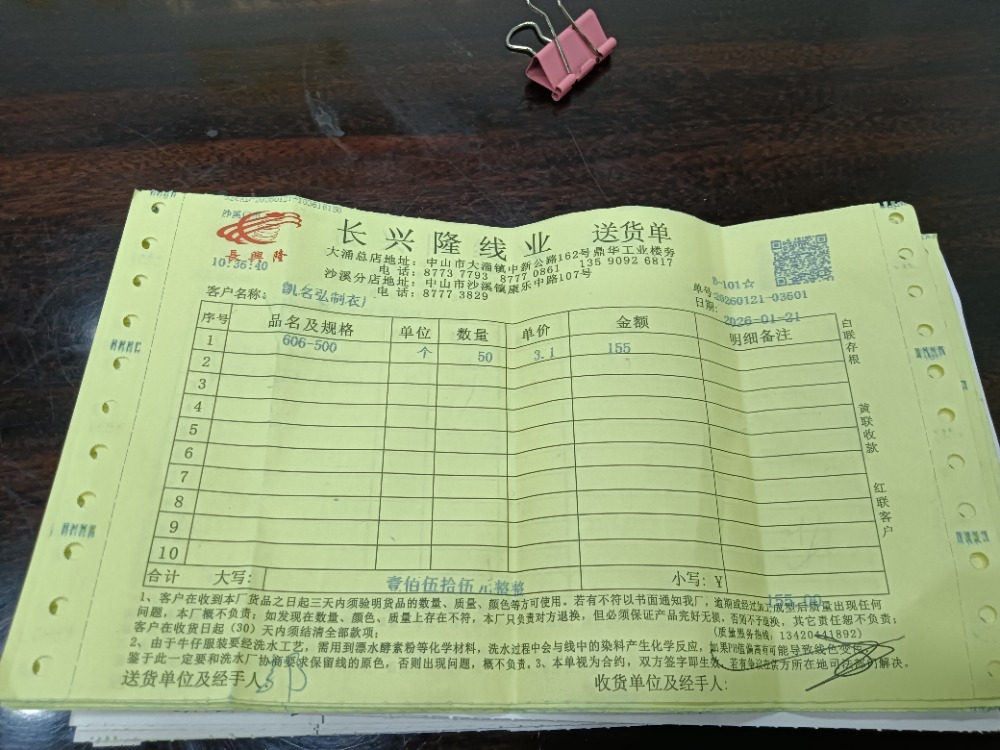 長興隆
10:36:40
长兴隆线业 送货单
大涌总店地址：中山市大涌镇中新公路162号鼎华工业楼旁
电话：8773 7793 8777 0861 135 9092 6817
沙溪分店地址：中山市沙溪镇康乐中路107号
电话：8777 3829
客户名称：凯名弘制衣厂
单号 20260121-03601
日期：2026-01-21
序号 品名及规格 单位 数量 单价 金额 明细备注
1 606-500 个 50 3.1 155
2
3
4
5
6
7
8
9
10
白联存根
黄联收款
红联客户
合计 大写：壹佰伍拾伍元整 小写：¥ 155.00
1、客户在收到本厂货品之日起三天内须验明货品的数量、质量、颜色等方可使用。若有不符以书面通知我厂，逾期或经过加工成熟后质量出现任何
问题，本厂概不负责；如发现在数量、颜色、质量上存在不符，本厂只负责对方退换，但必须保证产品完好无损，否则不于退换，其它责任恕不负责；
客户在收货日起（30）天内须结清全部款项； （质量服务热线：13420441892）
2、由于牛仔服装要经洗水工艺，需用到漂水酵素粉等化学材料，洗水过程中会与线中的染料产生化学反应，如果PH值偏高有可能导致线色变
鉴于此一定要和洗水厂协商要求保留线的原色，否则出现问题，概不负责，3、本单视为合约，双方签字即生效，若有争议在供方所在地司法部门解决。
送货单位及经手人： 收货单位及经手人：